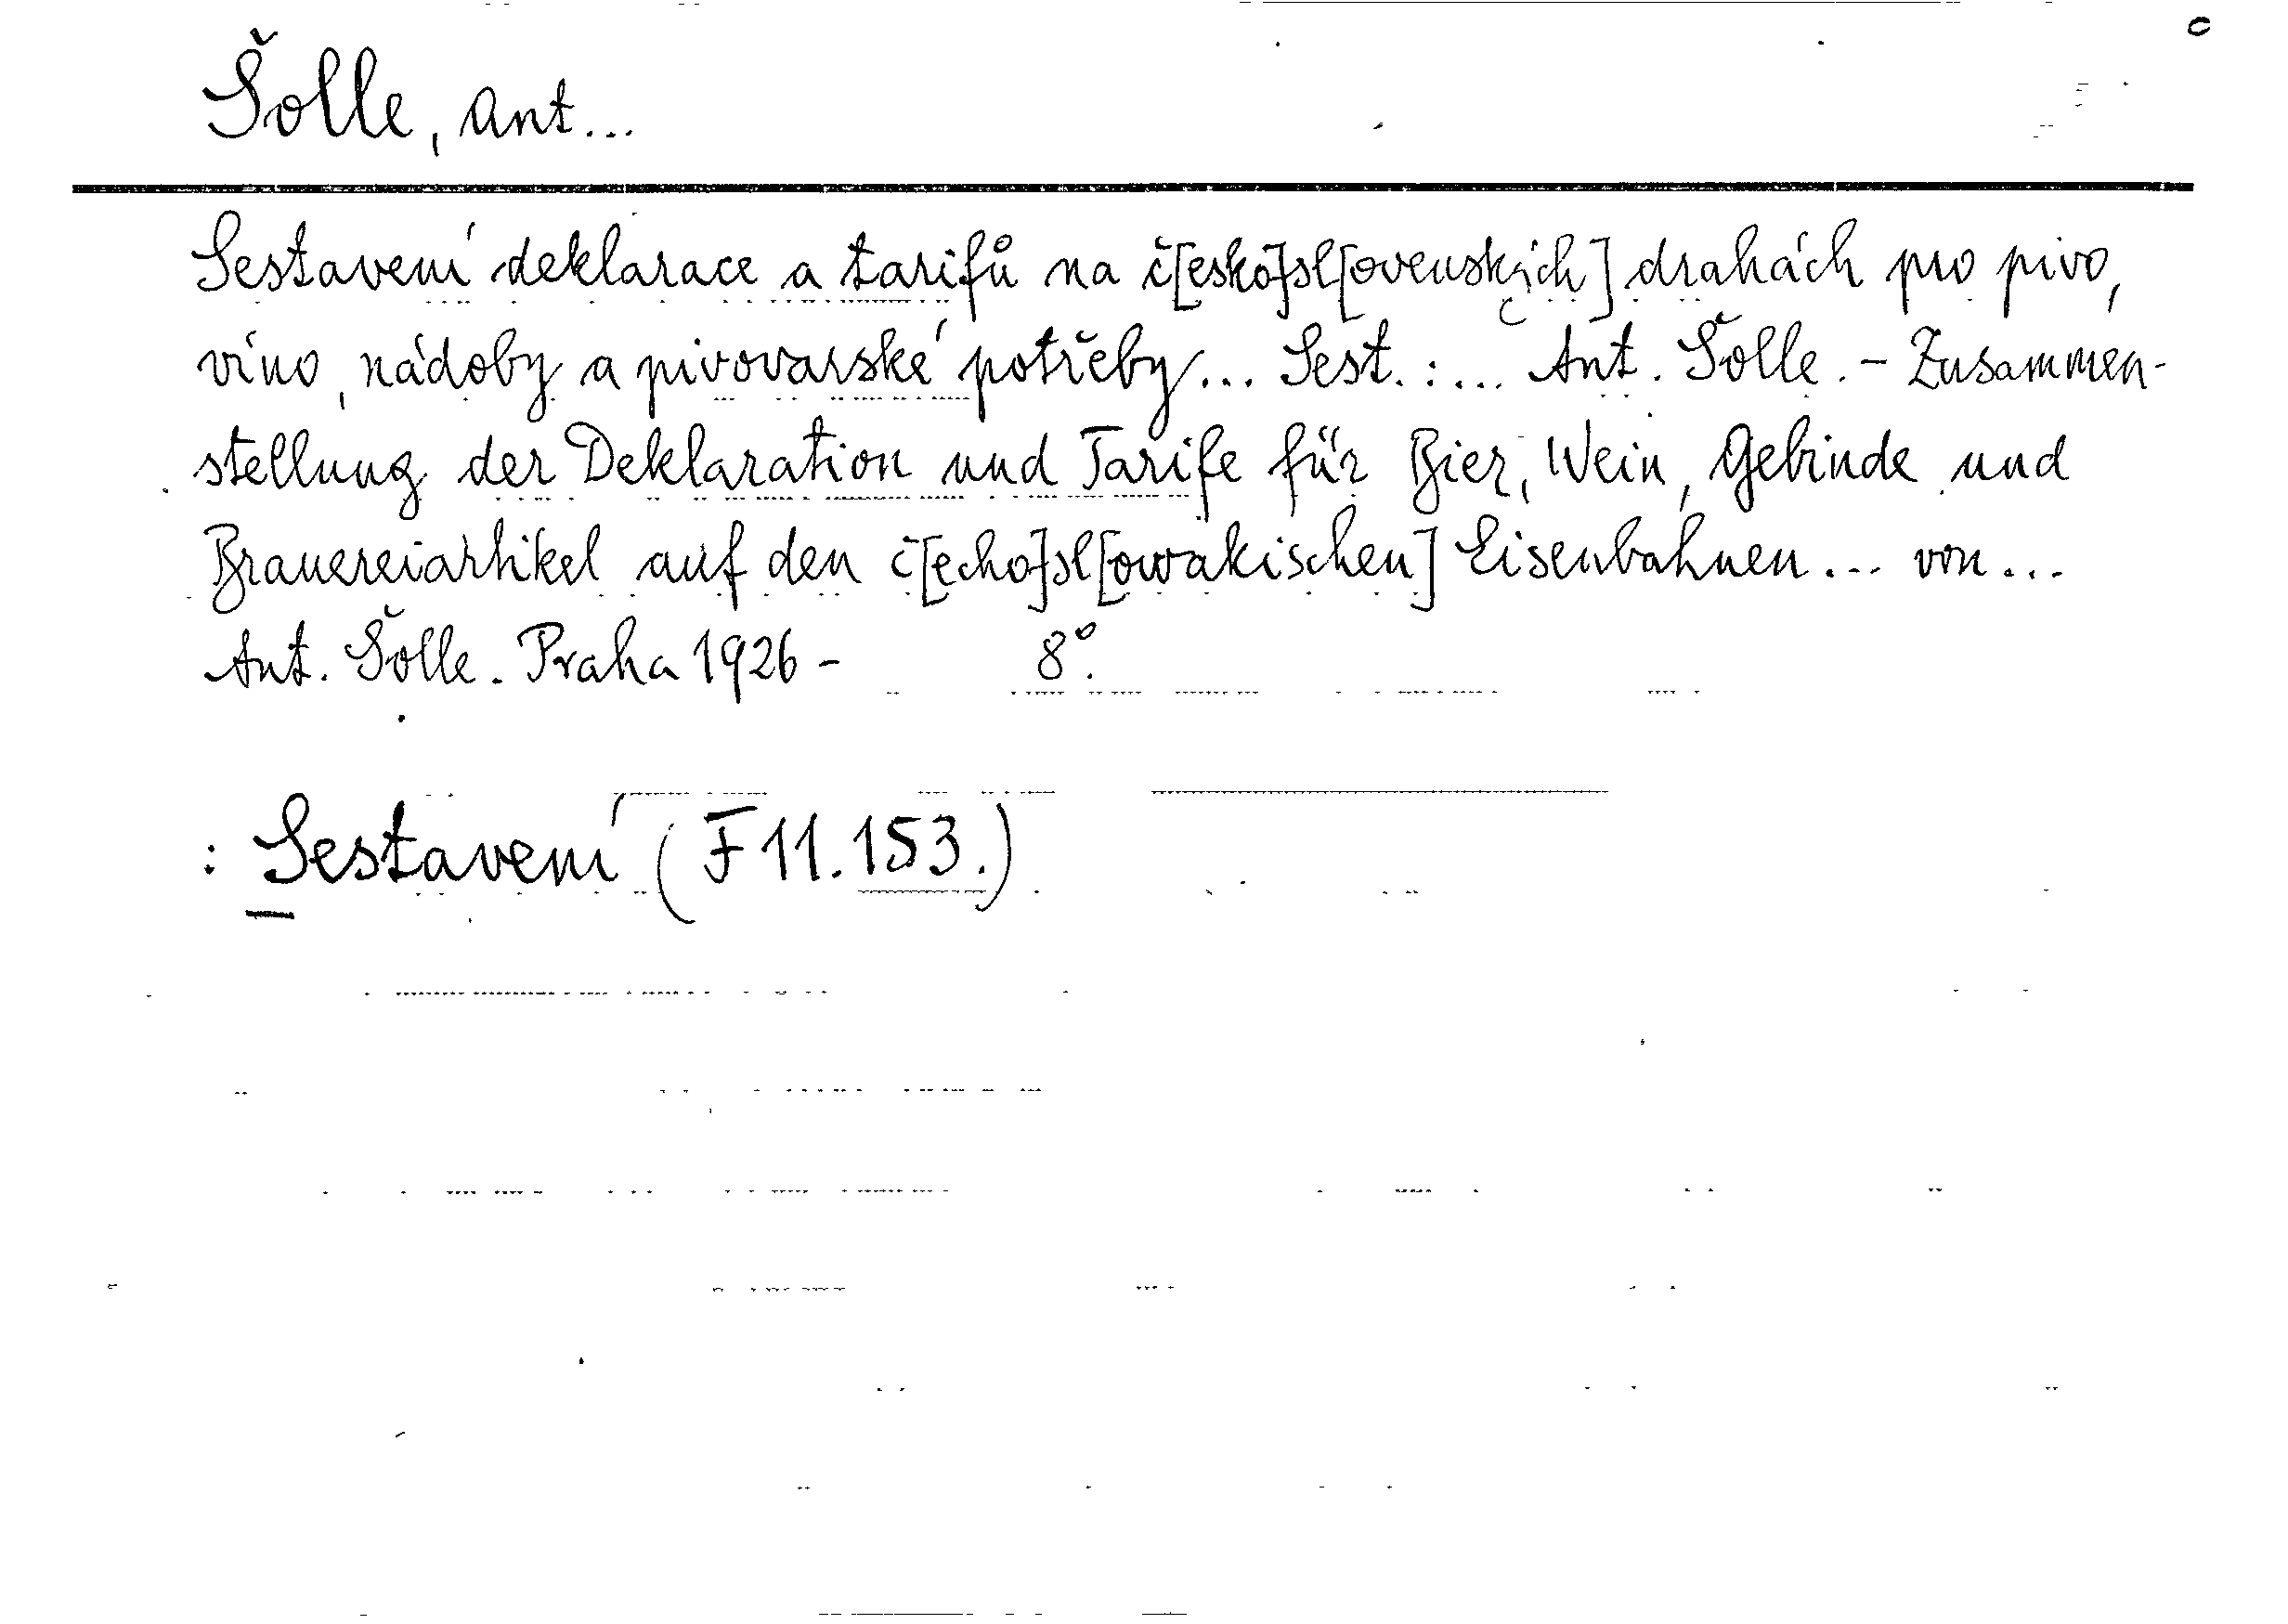 Šolle, Ant...
Sestavení deklarace a tarifů na č[esko]sl[ovenských] drahách pro pivo,
víno, nádoby a pivovarské potřeby... Sest.:... Ant. Šolle. - Zusammen-
stellung der Deklaration und Tarife für Bier, Wein, Gebinde und
Brauereiartikel auf den č[echo]sl[owakischen] Eisenbahnen... von...
Ant. Šolle. Praha 1926 - 8°.
: Sestavení (F 11.153.)